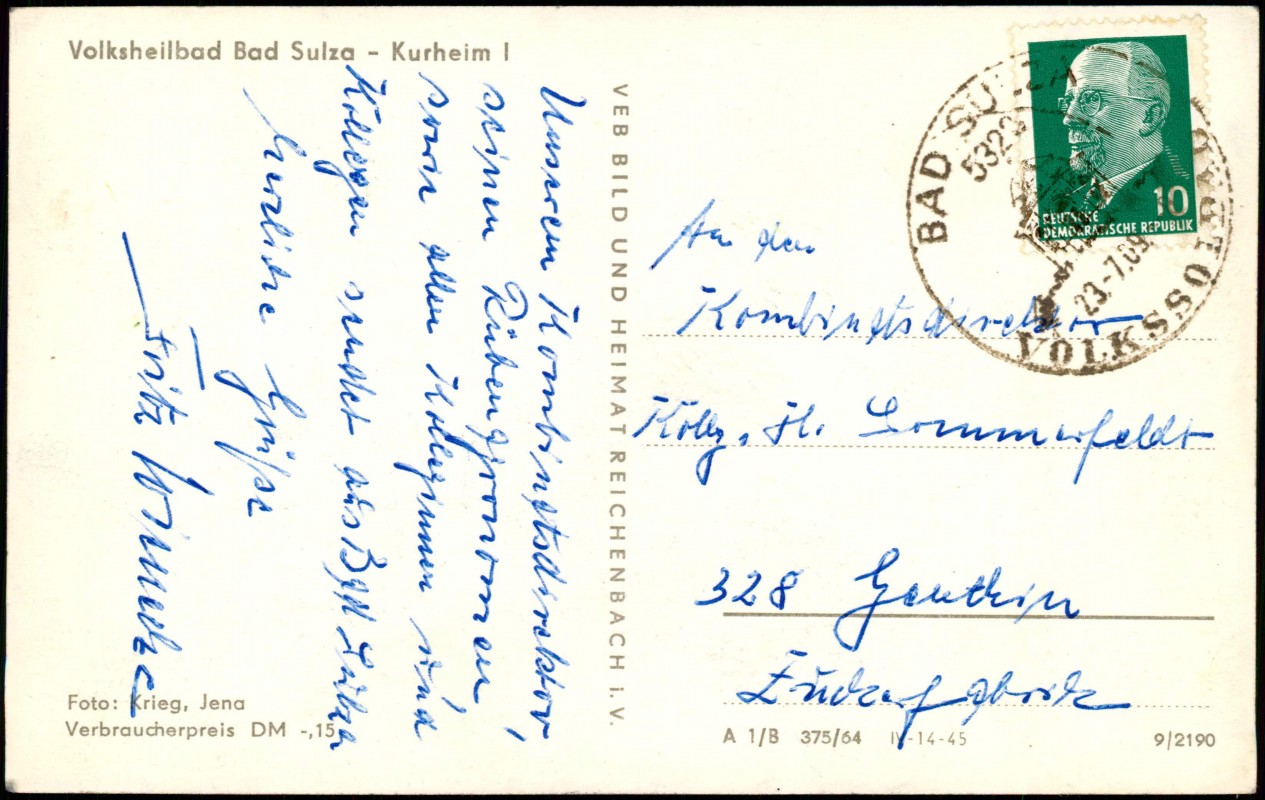 Volksheilbad Bad Sulza – Kurheim I
Unserem Kombinatsdirektor,
seinen Rübengronomen,
sowie allen Kolleginnen und
Kollegen sendet aus Bad Sulza
herzliche Grüße
Fritz
Foto: Krieg, Jena
Verbraucherpreis DM -,15
VEB BILD UND HEIMAT REICHENBACH i. V.
BAD SULZA
5322
23.-7.69
VOLKSSOLBAD
10
DEUTSCHE
DEMOKRATISCHE REPUBLIK
An den
Kombinatsdirektor
Kolleg. H. Sommerfeldt
328 Genthin
Zuckerfabrik
A 1/B 375/64 IV-14-45 9/2190